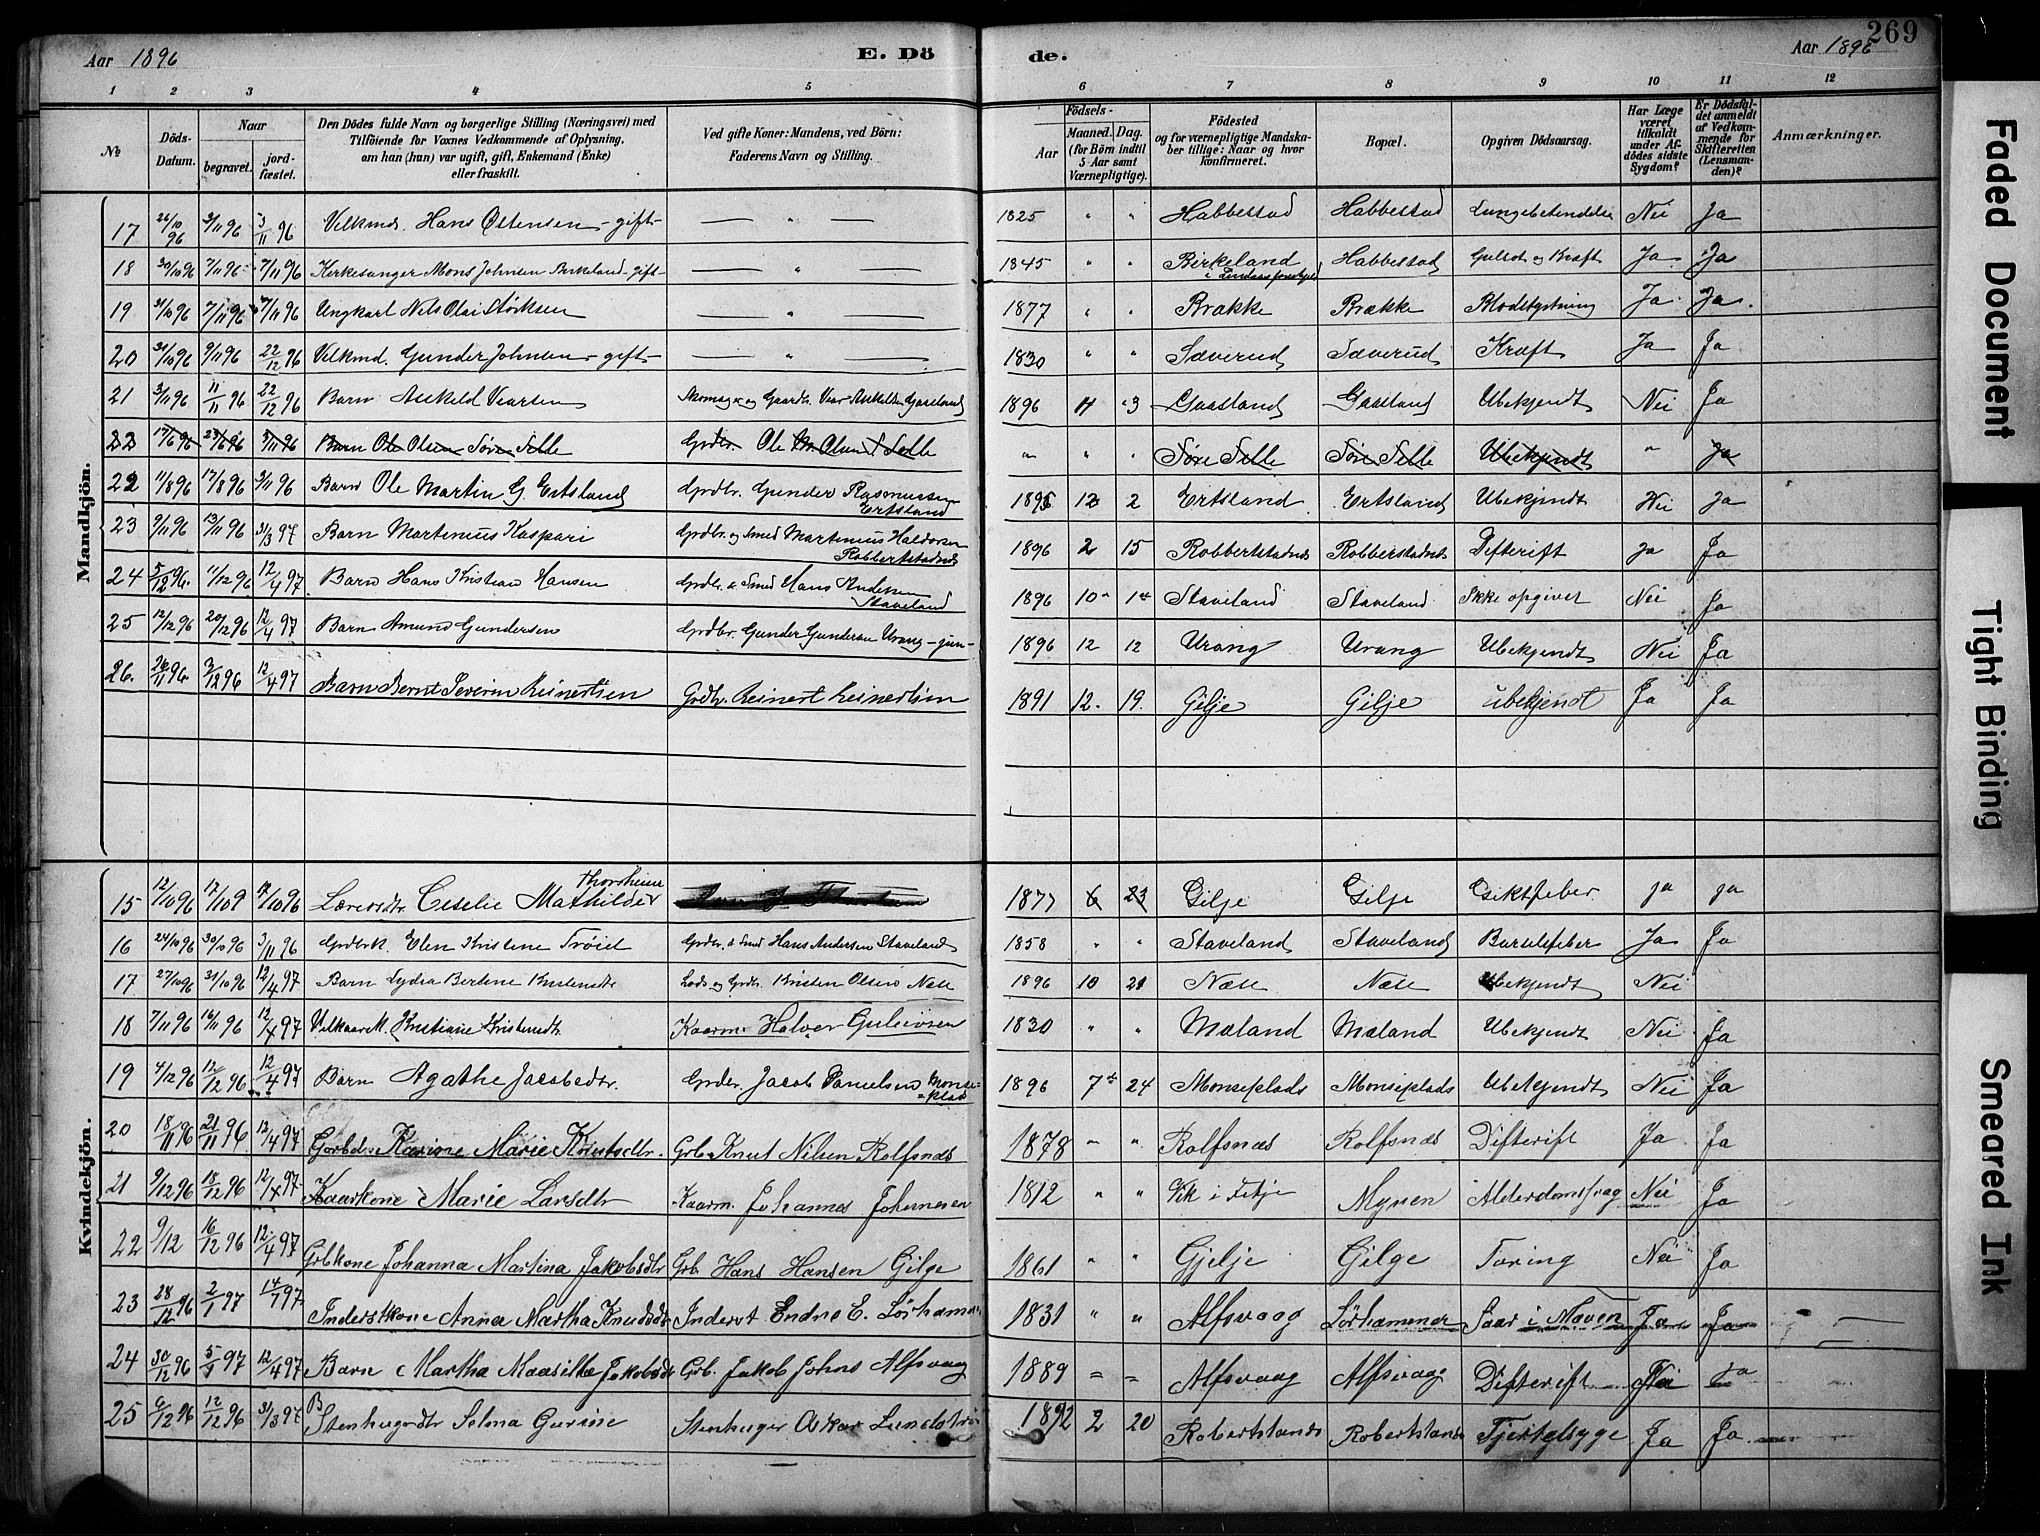 269
Aar 1896 E. Dö de. Aar 1896
1 2 3 4 5 6 7 8 9 10 11 12
№ Döds-Datum. Naar begravet. jord-fæstet. Den Dödes fulde Navn og borgerlige Stilling (Næringsvei) med Tilföiende for Voxnes Vedkommende af Oplysning, om han (hun) var ugift, gift, Enkemand (Enke) eller fraskilt. Ved gifte Koner: Mandens, ved Börn: Faderens Navn og Stilling. Födsels- Aar Maaned. Dag. (for Börn indtil 5 Aar samt Værnepligtige). Födested og for værnepligtige Mandska-ber tillige: Naar og hvor konfirmeret. Bopæl. Opgiven Dödsaarsag. Har Læge været tilkaldt under Af-dödes sidste Sygdom? Er Dödsfal-det anmeldt af Vedkom-mende for Skifteretten (Lensman-den)? Anmærkninger.
Mandkjön.
17 26/10 96 3/11 96 3/11 96 Velkmd. Hans Ostensen - gift - — " — 1825 " " Habbestad Habbestad Lungebetendelse Nei Ja
18 30/10 96 7/11 96 7/11 96 Kirkesanger Mons Johnsen Birkeland - gift - — " — 1845 " " Birkeland i Habbestad Gulsot og Kræft Ja Ja
19 31/10 96 7/11 96 7/11 96 Ungkarl Nils Olai Störksen — " — 1877 " " Brække Brække Blodstyrtning Ja Ja
20 31/10 96 9/11 96 22/12 96 Velkmd. Gunder Johnsen - gift - — " — 1830 " " Sæverud Sæverud Kræft Ja Ja
21 3/11 96 11/11 96 22/12 96 Barn Askeld Vearsen Skomager og Gaardbr. Vear Askeldsen Gaasland 1896 11 3 Gaasland Gaasland Ubekjendt Nei Ja
22 17/6 96 23/6 96 3/11 96 Barn Ole Olsen Søre Selle Grdbr. Ole Olsen S Selle " " " Søre Selle Søre Selle Ubekjendt " Ja
22 11/8 96 17/8 96 3/11 96 Barn Ole Martin G. Ertsland Grdbr. Gunder Rasmussen Ertsland 1895 12 2 Ertsland Ertsland Ubekjendt Nei Ja
23 9/11 96 13/11 96 31/3 97 Barn Martinius Kaspari Grdbr. og Smed Martinius Haldorsen Robbertstadnes 1896 2 15 Robbertstadnes Robberstadnes Difterift Ja Ja
24 5/12 96. 11/12 96 12/4 97. Barn Hans Kristian Hansen Grdbr. & Smed Hans Andersen Staveland 1896 10 Staveland Staveland Ikke opgivet Nei Ja
25 12/12 96 20/12 96 12/4 97 Barn Amund Gundersen Grdbr. Gunder Gundersen Urang - jun - 1896 12 12 Urang Urang Ubekjendt Nei Ja
26. 26/11 96. 3/12 96 12/4 97 Barn Bernt Severin Reinertsen Grdbr. Reinert Reinertsen 1891 12. 19. Gilje Gilje Ubekjendt Ja Ja
Kvindekjön.
15 12/10 96 17/10 9 17/10 96 Thorsheim
Lærersdtr Ceselie Mathilde 1877 6 23 Gilje Gilje Giktfeber Ja Ja
16 24/10 96 30/10 96 3/11 96 Grdbrk. Elen Kristine Trøiel Grdbr. & Smed Hans Andersen Staveland 1858 " " Staveland Staveland Barselfeber Ja Ja
17 27/10 96 31/10 96 12/4 97 Barn Lydia Bertine Kristensdtr Lods og Grdbr. Kristen Olsen Nese 1896 10 21 Næse Næse Ubekjendt Nei
18 7/11 96 16/11 96 12/4 97 Velkaark. Kristiane Kristensdtr Kaarm. Halvor Guleivsen 1830 " " Mæland Mæland Ubekjendt Nei Ja
19 4/12 96 12/12 96 12/4 97 Barn Agathe Jacobsdtr. Grdbr. Jacob Danielsen Monse-plads 1896 7 24 Monseplads Monseplads Ubekjendt Nei Ja
20 18/11 96 21/11 96 12/4 97 Grbd. Karine Marie Knutsdtr. Grb. Knut Nilsen Rolfsnæs 1878 " " Rolfsnæs Rolfsnæs Difterift Ja Ja
21 9/12 96 18/12 96 12/4 97 Kaarkone Marie Larsdtr Kaarm. Johannes Johnesen 1812 " " Vik i Fitje Mynen Alderdomssvag Nei Ja
22 9/12 16/12 96 12/4 97 Grbkone Johanna Martina Jakobsdtr Grb. Hans Hansen Gilge 1861 " " Gjelje Gilge Tæring Nei Ja
23 28/12 96 2/1 97 14/1 97 Inderstkone Anna Martha Knudsdtr Inderst Endre E. Lørhamn 1831 " " Alfsvaag Lørhammer Saar i Maven Ja Ja
24 30/12 96 5/1 97 12/4 97 Barn Martha Jakobsdtr Grb. Jakob Johns Alfsvaag 1889 = = Alfsvaag Alfsvaag Difterift Nei Ja
25 6/12 96 12/12 96 31/3 97 B Stenhugerdtr Selma Gurine Stenhuger Oskar 1892 2 20 Robertstands Robertstands Hjertesyge Ja Ja
Faded Document
Tight Binding
Smeared Ink